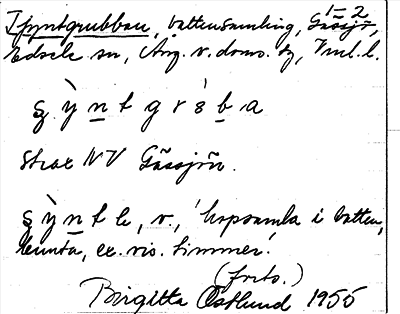 Tjyntgrubban, vattensamling, Gåssjö, 1-2
Edsele sn, Ång. v. doms. tg, Vnl. l.
s ỳ n t g r ò b a
strax NV Gåssjön.
s ỳ n t e, v., 'hopsamla i vatten,
bunta, ex. vis. timmer.'
(forts.)
Birgitta Östlund 1955